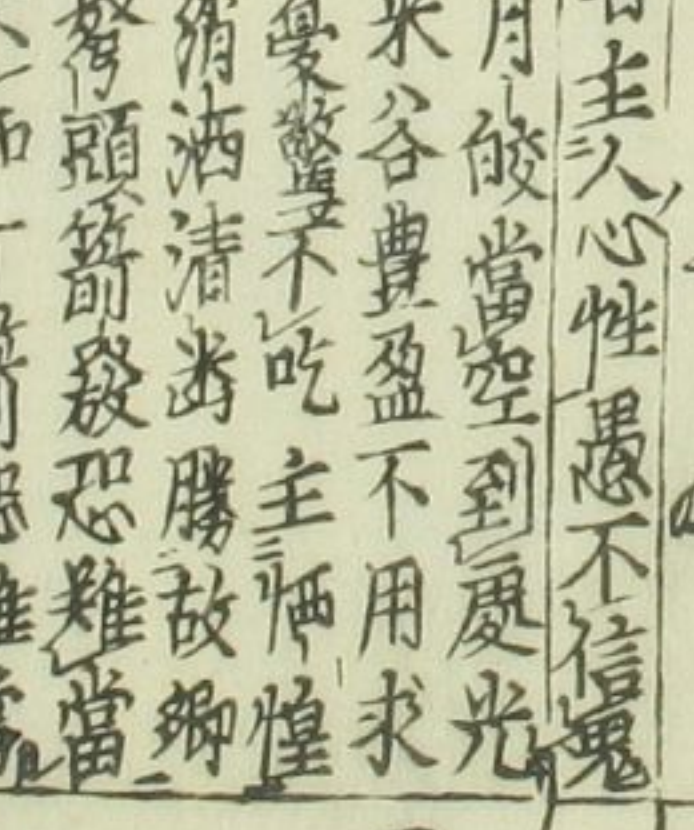 主人心性愚不信鬼
月皎當空到處光
米谷豊盈不用求
憂驚不吃主恓惶
綃洒清幽勝故鄉
頭箭發恐難當